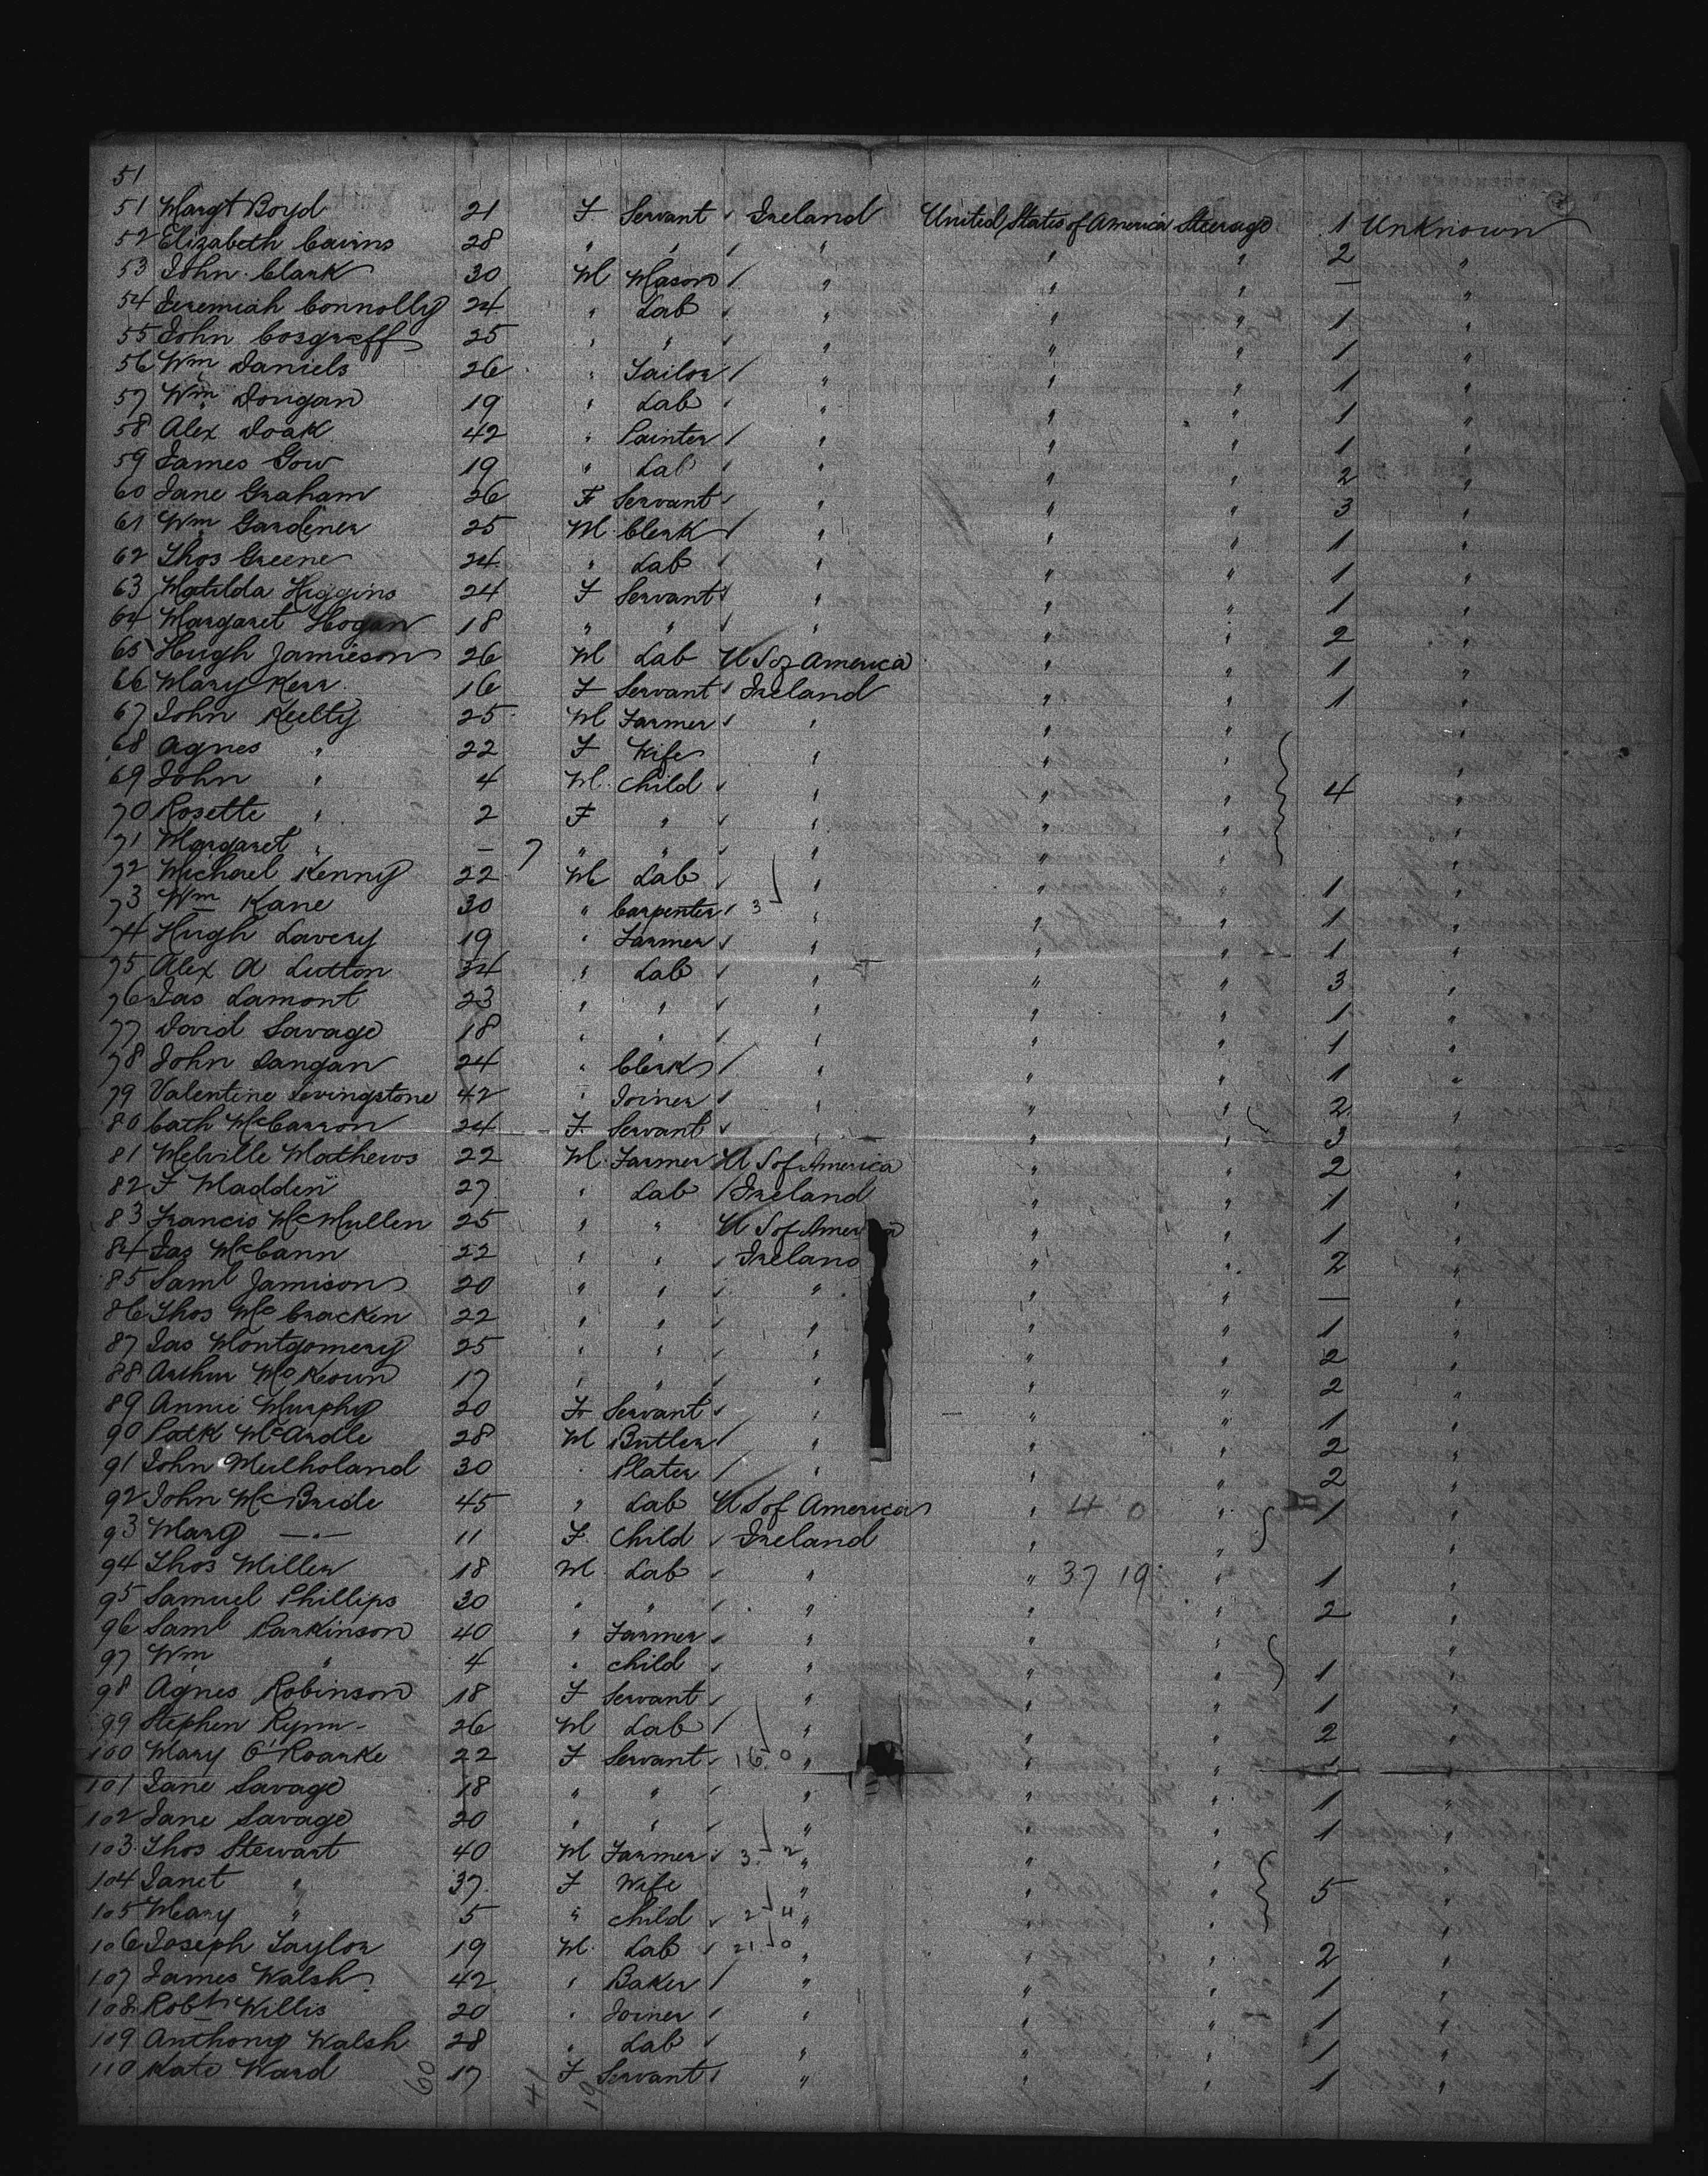 51
51 Margt Boyd 21 F Servant Ireland United States of America Steerage 1 Unknown
52 Elizabeth Cairns 28 " " " " " 2 "
53 John Clark 30 M Mason " " " — "
54 Jeremiah Connolly 24 " Lab " " " 1 "
55 John Cosgreff 25 " " " " " 1 "
56 Wm Daniels 26 " Tailor " " " 1 "
57 Wm Dougan 19 " Lab " " " 1 "
58 Alex Doak 42 " Painter " " " 1 "
59 James Gow 19 " Lab " " " 2 "
60 Jane Graham 26 F Servant " " " 3 "
61 Wm Gardener 25 M Clerk " " " 1 "
62 Thos Greene 24 " Lab " " " 1 "
63 Matilda Higgins 24 F Servant " " " 1 "
64 Margaret Hogan 18 " " " " " 2 "
65 Hugh Jamieson 26 M Lab U S of America " " 1 "
66 Mary Kerr 16 F Servant Ireland " " 1 "
67 John Keelty 25 M Farmer " " " "
68 Agnes " 22 F Wife " " " "
69 John " 4 M Child " " " 4 "
70 Rosette " 2 F " " " " "
71 Margaret " – 7 " " " " " "
72 Michael Kenny 22 M Lab " " " 1 "
73 Wm Kane 30 " Carpenter 3 " " " 1 "
74 Hugh Lavery 19 " Farmer " " " 1 "
75 Alex A Lutton 34 " Lab " " " 3 "
76 Jas Lamont 23 " " " " " 1 "
77 David Savage 18 " " " " " 1 "
78 John Langan 24 " Clerk " " " 1 "
79 Valentine Livingstone 42 " Joiner " " " 2 "
80 Cath McCarron 24 F Servant " " " 3 "
81 Melville Mathews 22 M Farmer U S of America " " 2 "
82 F Madden 27 " Lab Ireland " " 1 "
83 Francis McMullen 25 " " U S of America " " 1 "
84 Jas McCann 22 " " Ireland " " 2 "
85 Saml Jamison 20 " " " " " — "
86 Thos McCracken 22 " " " " " 1 "
87 Jas Montgomery 25 " " " " " 2 "
88 Arthur McKeown 17 " " " " " 2 "
89 Annie Murphy 20 F Servant " " " 1 "
90 Patk McArdle 28 M Butler " " " 2 "
91 John Mulholand 30 " Plater " " " 2 "
92 John McBride 45 " Lab U S of America " 4 0 " 1 "
93 Mary — " — 11 F Child Ireland " " "
94 Thos Miller 18 M Lab " " 37 19 " 1 "
95 Samuel Phillips 30 " " " " " 2 "
96 Saml Parkinson 40 " Farmer " " " "
97 Wm " 4 " child " " " 1 "
98 Agnes Robinson 18 F Servant " " " 1 "
99 Stephen Rynn 26 M Lab " " " 2 "
100 Mary O'Roarke 22 F Servant 16 0 " " " 1 "
101 Jane Savage 18 " " " " " 1 "
102 Jane Savage 20 " " " " " 1 "
103 Thos Stewart 40 M Farmer 3 2 " " " "
104 Janet " 37 F Wife " " " 5 "
105 Mary " 5 " child 2 4 " " " "
106 Joseph Taylor 19 M Lab 21 0 " " " 2 "
107 James Walsh 42 " Baker " " " 1 "
108 Robt Willis 20 " Joiner " " " 1 "
109 Anthony Walsh 28 " Lab " " " 1 "
110 Kate Ward 17 F Servant " " " 1 "
60 41 19